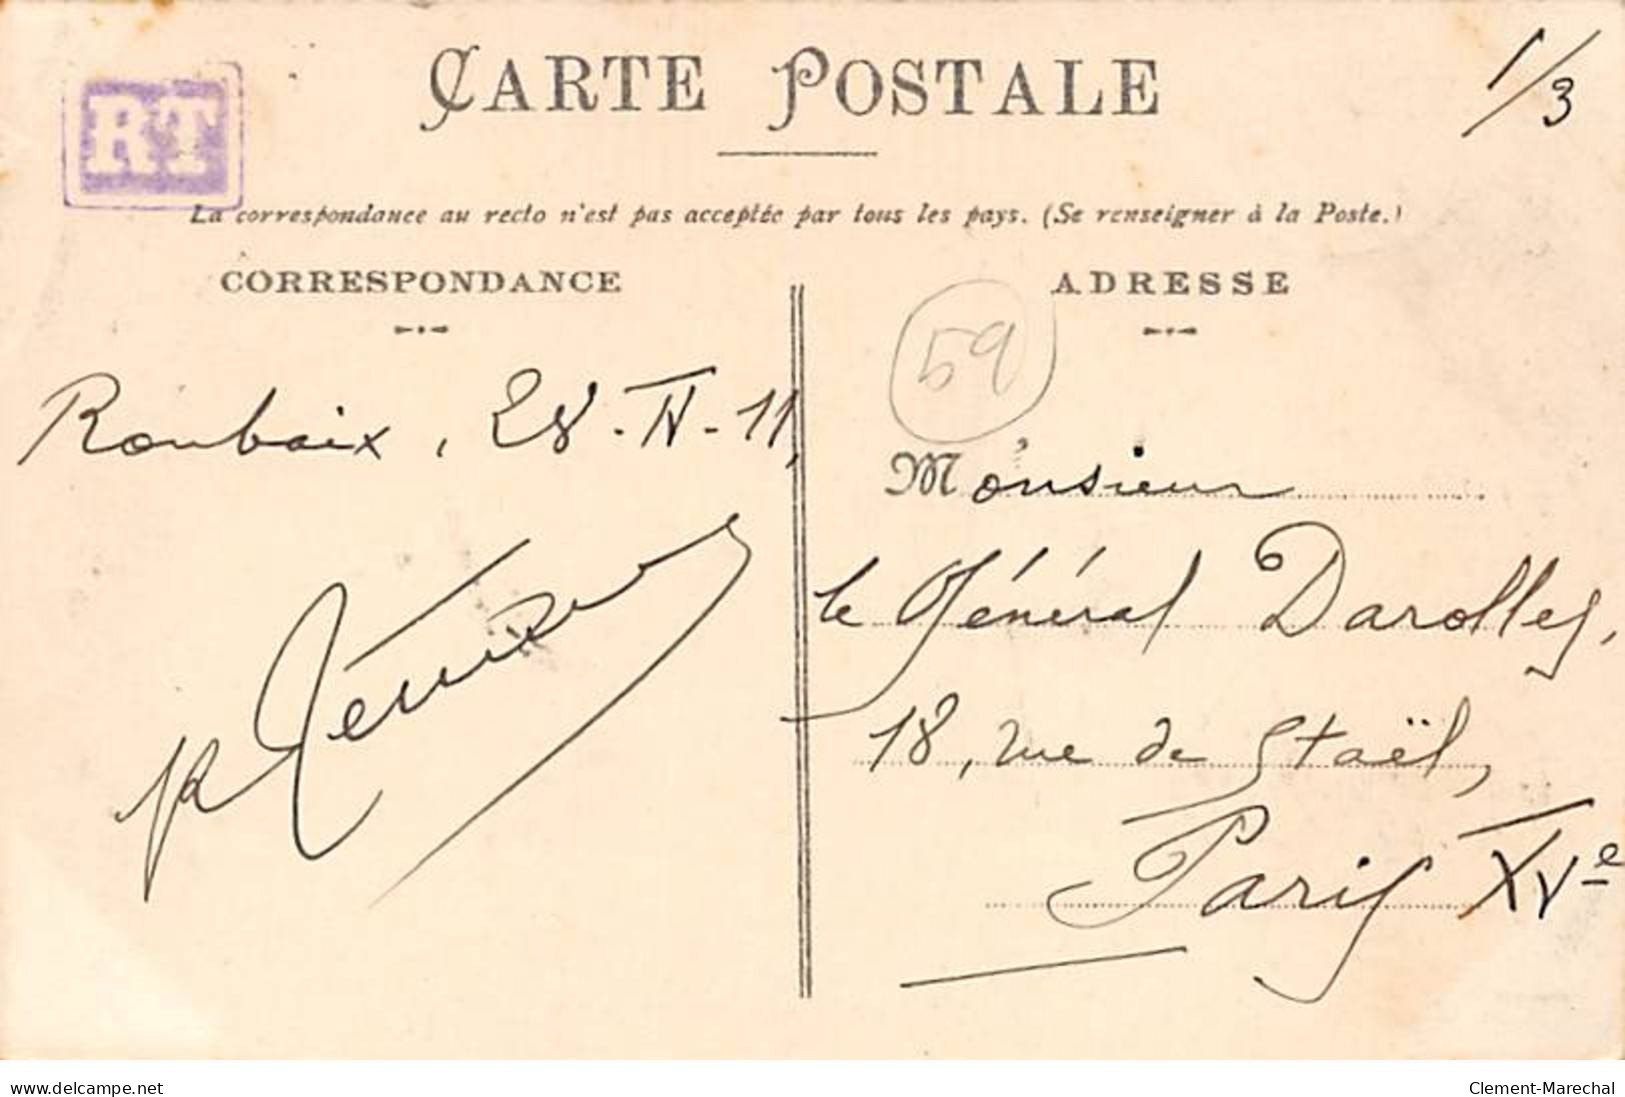 CARTE POSTALE
1/3
RT
La correspondance au recto n'est pas acceptée par tous les pays. (Se renseigner à la Poste.)
CORRESPONDANCE
ADRESSE
59
Roubaix, 28-IV-11,
Monsieur
le Général Darolles,
18, rue de Staël,
Paris XVe
www.delcampe.net
Clement-Marechal